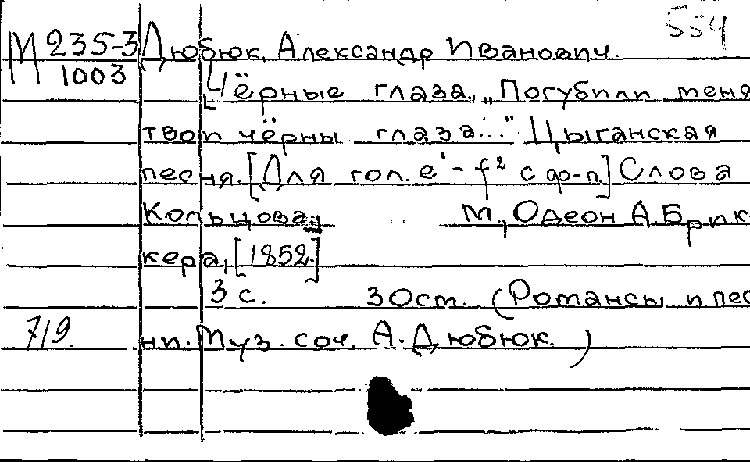 554
М 235-3 Дюбюк, Александр Иванович.
1003
Чёрные глаза. „Погубили меня
твои чёрны глаза..." Цыганская
песня. [Для гол. e¹-f² с фо-п.] Слова
Кольцова.
М., Одеон А. Брик-
кера, [1852.]
3 с. 30 см. (Романсы и пес-
719. ни. Муз. соч. А. Дюбюк.)